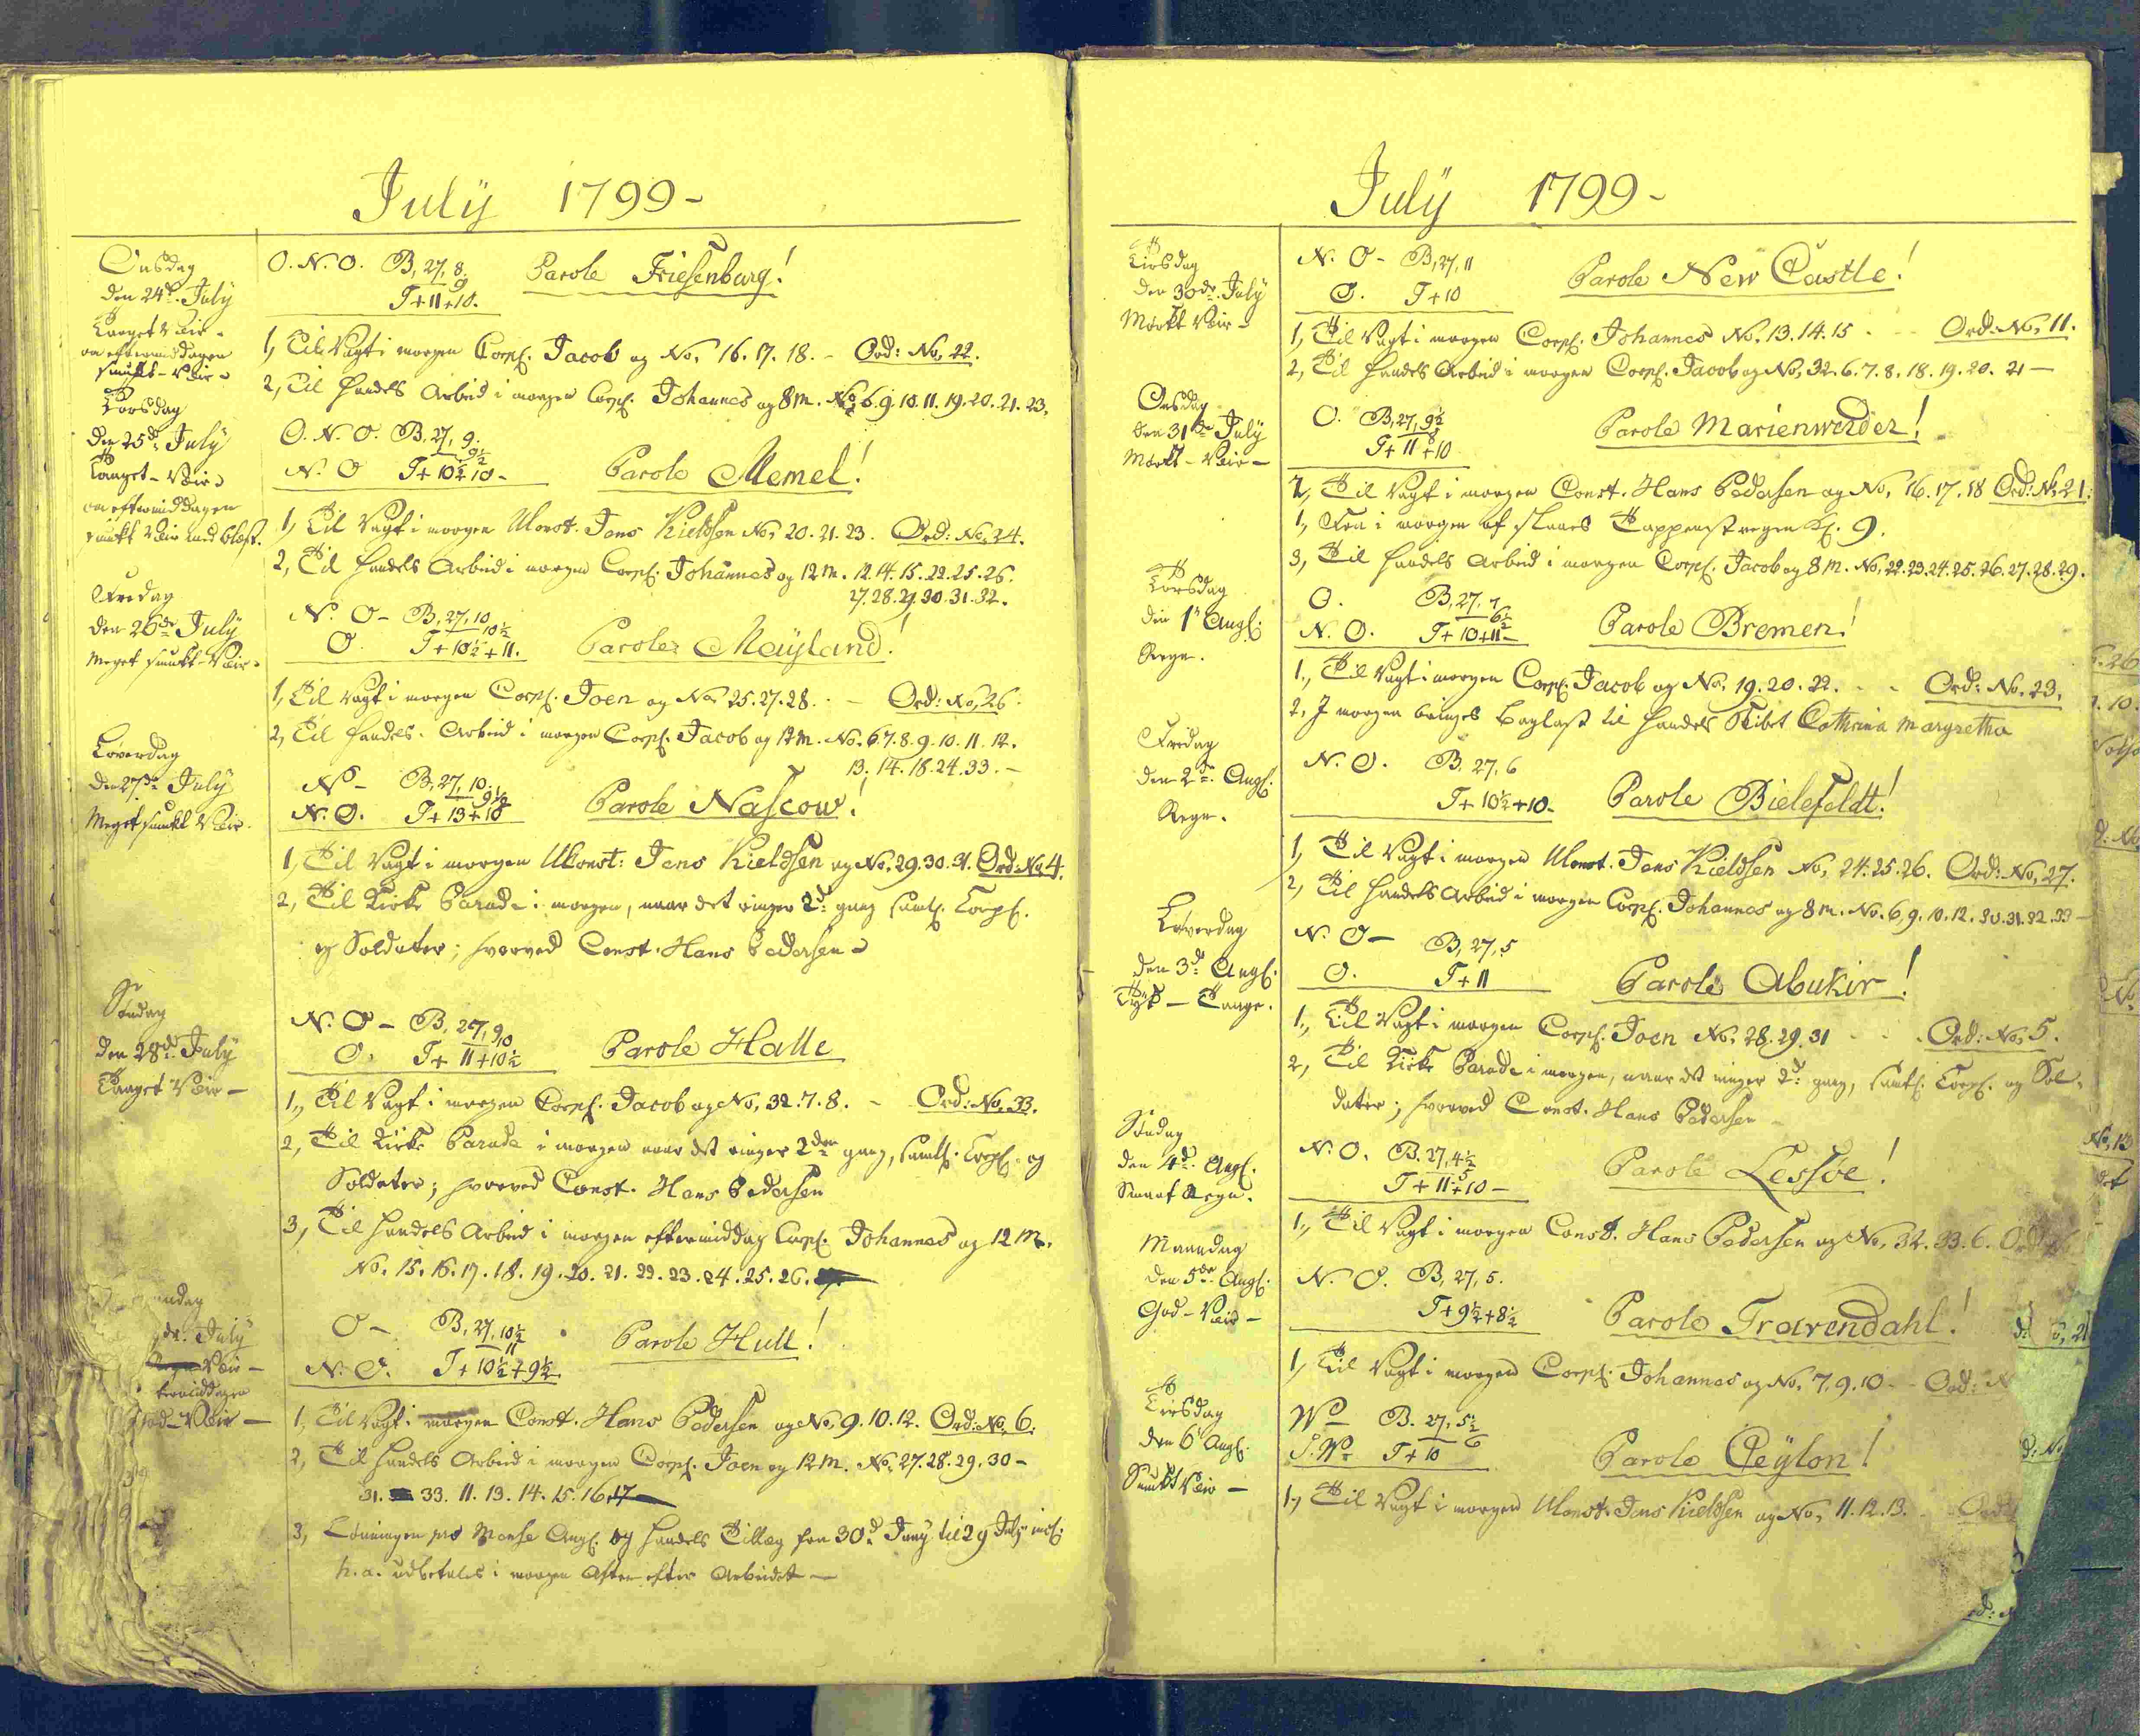 July 1799-
Onsdag
den 24de July
Taaget Veir-
om eftermiddagen
smukt-Veir-
O.N.O. B, 27, 8.
9
T+11+10.
Parole Friesenburg!
1, Til Vagt i morgen Corpl. Jacob og No, 16. 17. 18. - Ord: No, 22.
2, Til Handels Arbeid i morgen Corpl. Johannes og 8 m. No 6. 9. 10. 11. 19. 20. 21. 23.
Torsdag
den 25de July
Taaget-Veir-
om eftermiddagen
smukt Veir med blæst.
O.N.O. B, 27, 9.
9½
N.O T+10½ 10-
Parole Memel!
1, Til Vagt i morgen UConst. Jens Kieldsen No, 20. 21. 23. Ord: No, 24.
2, Til Handels Arbeid i morgen Corpl. Johannes og 12 m. 12. 14. 15. 22. 25. 26.
27. 28. 29. 30. 31. 32.
Fredag
den 26de July
Meget smukt-Veir-
N.O- B, 27, 10
10½
O. T+10½+11.
Parole Mayland!
1, Til Vagt i morgen Corpl. Joen og No 25. 27. 28. - Ord: No, 26.
2, Til Handels. Arbeid i morgen Corpl. Jacob og 12 m. No. 6. 7. 8. 9. 10. 11. 12.
13. 14. 18. 24. 33. -
Løverdag
den 27de July
Meget smukt Veir.
N- B, 27, 10
9½
N.O. T+13+10
Parole Nascow!
1, Til Vagt i morgen UConst: Jens Kieldsen og No. 29. 30. 31. Ord: No 4.
2, Til Kirke Parade i morgen, naar det ringer 2d: gang samtl. Corpl.
og Soldater; hvorved Const. Hans Pedersen-
Søndag
den 28de July
Taaget Veir-
N.O- B, 27, 9
10
O. T+11+10½
Parole Halle
1, Til Vagt i morgen Corpl. Jacob og No, 32. 7. 8. - Ord: No, 33.
2, Til Kirke Parade i morgen naar det ringer 2den gang, samtl. Corpl. og
Soldater; hvorved Const. Hans Pedersen
3, Til Handels Arbeid i morgen eftermiddag Corpl. Johannes og 12 M.
No. 15. 16. 17. 18. 19. 20. 21. 22. 23. 24. 25. 26.
ndag
de July
Veir-
termiddagen
god-Veir-
O- B, 27, 10½
11
N.O. T+10½+9½
Parole Hull!
1, Til Vagt i morgen Const. Hans Pedersen og No, 9. 10. 12. Ord: No. 6.
2, Til Handels Arbeid i morgen Corpl. Joen og 12 M. No. 27. 28. 29. 30-
31. 33. 11. 13. 14. 15. 16. 17
3, Lønningen pro Augl. og Handels Tillæg fra 30d Juny til 29 July incl:
h.a. udbetales i morgen Aften efter Arbeidet-
July 1799-
Tirsdag
den 30de July
Mørkt Veir-
N.O- B, 27, 11
O. T+10
Parole New Castle!
1, Til Vagt i morgen Corpl. Johannes No. 13. 14. 15 - Ord: No, 11.
2, Til Handels Arbeid i morgen Corpl. Jacob og No, 32. 6. 7. 8. 18. 19. 20. 21-
Onsdag
den 31te July
Mørkt-Veir-
O. B, 27, 9½
8
T+11+10
Parole Marienwerder!
2, Til Vagt i morgen Const. Hans Pedersen og No, 16. 17. 18 Ord: No, 21.
1, Fra i morgen af slaaes Tappenstregen Kl. 9.
3, Til Handels Arbeid i morgen Corpl. Jacob og 8 m. No, 22. 23. 24. 25. 26. 27. 28. 29.
Torsdag
den 1te Augl:
Regn.
O. B, 27, 7
6½
N.O. T+10+11-
Parole Bremen!
1, Til Vagt i morgen Corpl. Jacob og No. 19. 20. 22. - - Ord: No. 23.
2, I morgen bringes Baglast til Handels Skibet Cathrina Margretha
Fredag
den 2de Augl.
Regn.
N.O. B. 27, 6
T+10½+10-
Parole Bielefeldt!
1, Til Vagt i morgen UConst. Jens Kieldsen No, 24. 25. 26. Ord: No, 27.
2, Til Handels Arbeid i morgen Corpl. Johannes og 8 m. No. 6. 9. 10. 12. 30. 31. 32. 33-
Løverdag
den 3de Augl.
Tyk-Taage.
N.O- B, 27, 5
O. T+11
Parole Abukir!
1, Til Vagt i morgen Corpl. Joen No. 28. 29. 31 - - Ord: No, 5.
2, Til Kirke Parade i morgen, naar det ringer 2d: gang, samtl. Corpl. og Sol-
dater; hvorved Const. Hans Pedersen-
Søndag
den 4de Augl.
Smaat Regn.
N.O. B. 27, 4½
5
T+11+10-
Parole Lessøe!
1, Til Vagt i morgen Const. Hans Pedersen og No, 32. 33. 6. Ord
Maandag
den 5de Augl.
God-Veir-
N.O. B, 27, 5.
T+9½+8½
Parole Travendahl!
1, Til Vagt i morgen Corpl. Johannes og No. 7. 9. 10 - - Ord: N
Tirsdag
den 6te Augl.
Smukt Veir-
W- B. 27, 5½
6
S.W- T+10
Parole Ceylon!
1, Til Vagt i morgen UConst. Jens Kieldsen og No, 11. 12. 13. - Ord